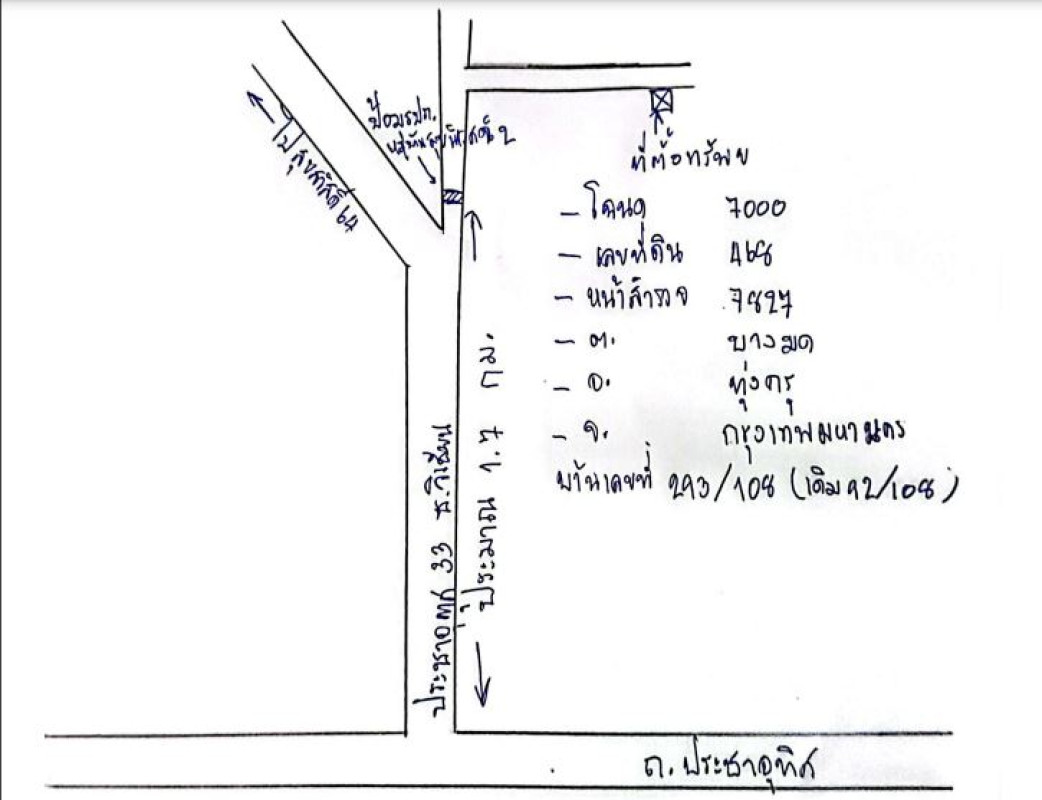 ป้อมรปภ.
ไปสุขสวัสดิ์ 64
ที่ตั้งทรัพย์
- โฉนด 7000
- เลขที่ดิน 468
- หน้าสำรวจ 7827
- ต. บางมด
- อ. ทุ่งครุ
- จ. กรุงเทพมหานคร
บ้านเลขที่ 293/108 (เดิม 92/108)
ประมาณ 1.7 กม.
ประชาอุทิศ 33
ถ.ประชาอุทิศ